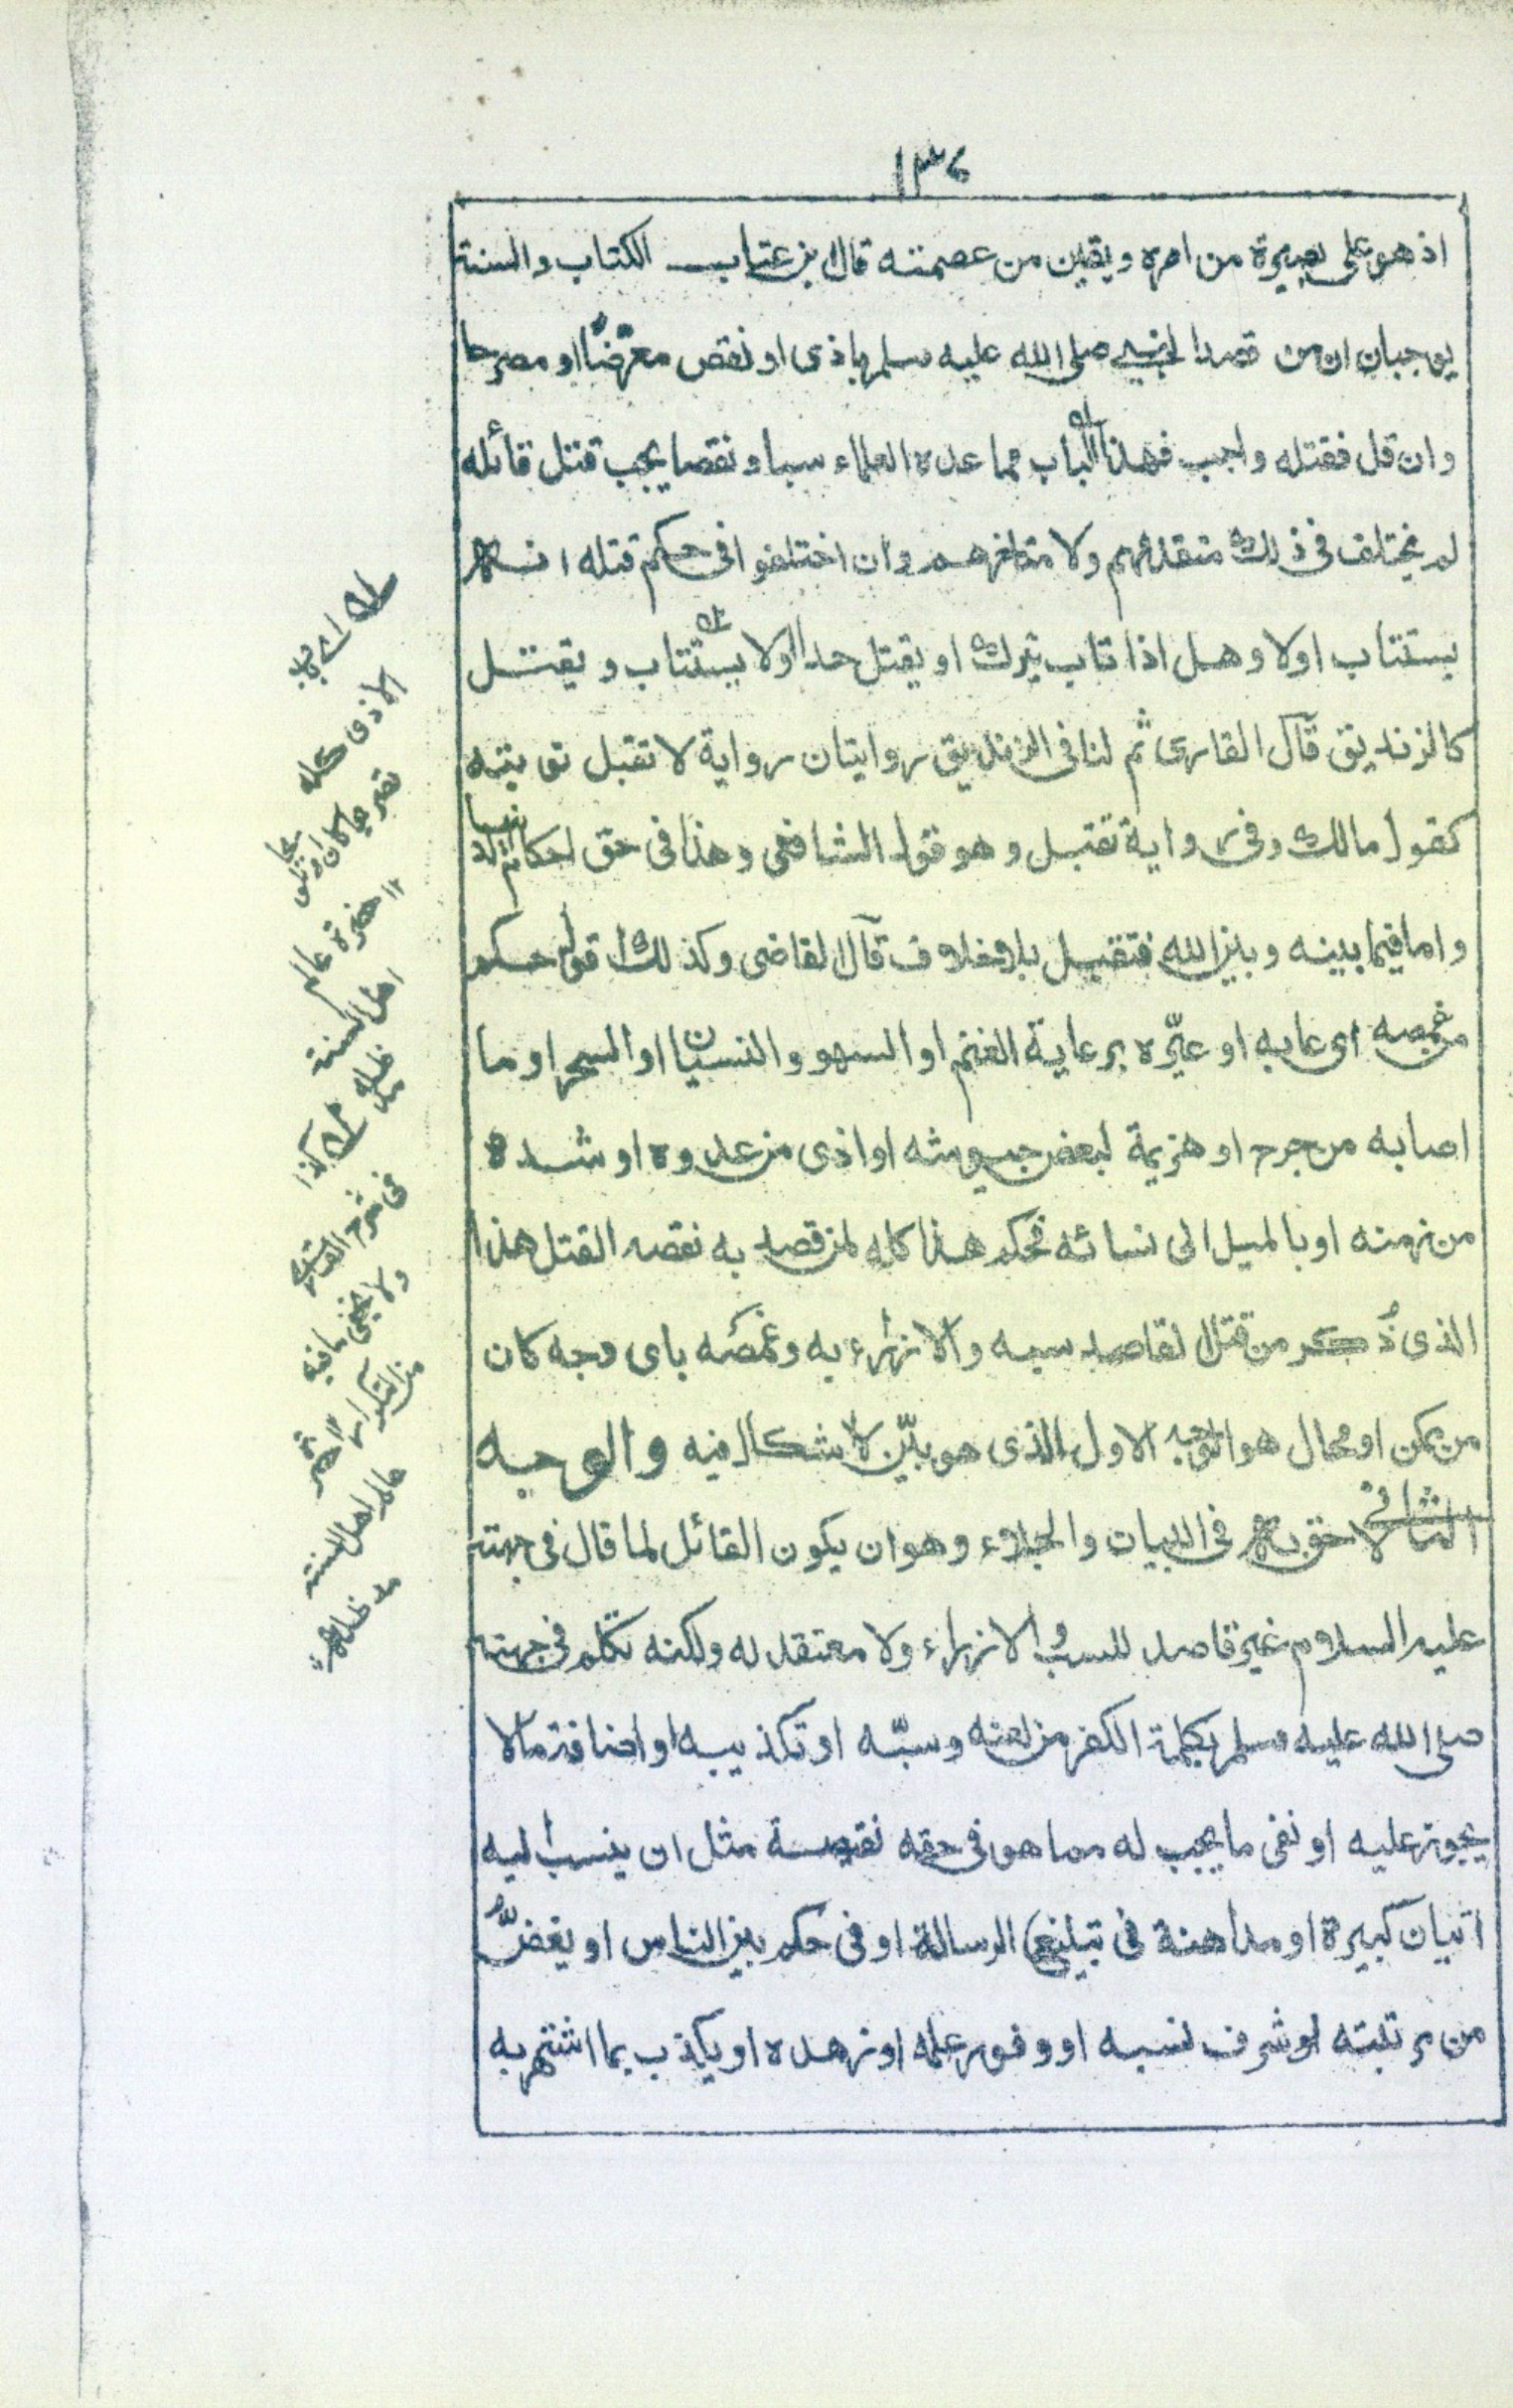 ١٣٤
اذ هو على بصيرة من امره ويقين من عصمته قال بن عتاب الكتاب والسنة
يوجبان ان من قصد النبي صلى الله عليه وسلم باذى او نقص معرّضًا او مصرحا
وان قل فقتله واجب فهذا الباب مما عده العلماء سبا ونقصا يجب قتل قائله
لم يختلف فى ذلك متقدمهم ولا متاخرهم وان اختلفوا فى حكم قتله انه هل
يستتاب اولا وهل اذا تاب يترك او يقتل حدا اولا يستتاب ويقتل
كالزنديق قال القارى ثم لنا فى الزنديق روايتان رواية لا تقبل توبته
كقول مالك وفى رواية تقبل وهو قول الشافعى وهذا فى حق احكام الدنيا
واما فيما بينه وبين الله فتقبل بلا خلاف قال القاضى وكذلك اقول حكم
من غمصه اى عابه او عيّره برعاية الغنم او السهو والنسيان او السحر او ما
اصابه من جرح او هزيمة لبعض جيوشه او اذى من عدوه او شدة
من زمنه او بالميل الى نسائه فحكم هذا كله لمن قصد به نقصه القتل هذا
الذى ذُكر من قتل القاصد سبه والازراء به وغمصه باى وجه كان
من ممكن او محال هو الوجه الاول الذى هو بيّن لا اشكال فيه والوجه
الثانى لاحق به فى البيان والجلاء وهو ان يكون القائل لما قال فى جهته
عليه السلام غير قاصد للسب والازراء ولا معتقد له ولكنه تكلم فى جهته
صلى الله عليه وسلم بكلمة الكفر من لعنه وسبّه او تكذيبه او اضافة ما لا
يجوز عليه او نفى ما يجب له مما هو فى حقه نقيصة مثل ان ينسب اليه
اتيان كبيرة او مداهنة فى تبليغ الرسالة او فى حكم بين الناس او يغضّ
من مرتبته او شرف نسبه او وفور علمه او زهده او يكذب بما اشتهر به
الاذى كله
حضرة عالم
اهل السنة
مد ظله
كذا
فى شرح القارى
ولا يخفى ما فيه
من التكرار
حضرة
عالم اهل السنة
مد ظله